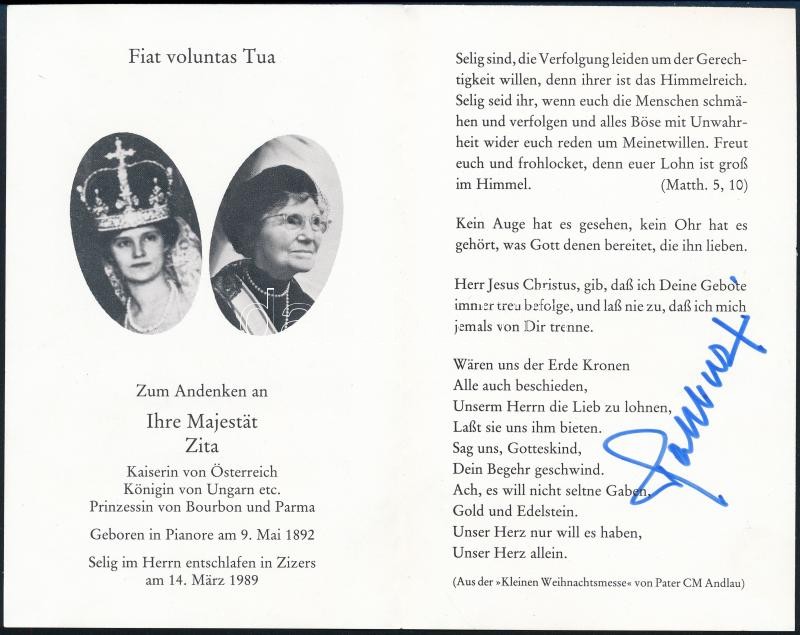 Fiat voluntas Tua
Zum Andenken an
Ihre Majestät
Zita
Kaiserin von Österreich
Königin von Ungarn etc.
Prinzessin von Bourbon und Parma
Geboren in Pianore am 9. Mai 1892
Selig im Herrn entschlafen in Zizers
am 14. März 1989
Selig sind, die Verfolgung leiden um der Gerech-
tigkeit willen, denn ihrer ist das Himmelreich.
Selig seid ihr, wenn euch die Menschen schmä-
hen und verfolgen und alles Böse mit Unwahr-
heit wider euch reden um Meinetwillen. Freut
euch und frohlocket, denn euer Lohn ist groß
im Himmel. (Matth. 5, 10)
Kein Auge hat es gesehen, kein Ohr hat es
gehört, was Gott denen bereitet, die ihn lieben.
Herr Jesus Christus, gib, daß ich Deine Gebote
immer treu befolge, und laß nie zu, daß ich mich
jemals von Dir trenne.
Wären uns der Erde Kronen
Alle auch beschieden,
Unserm Herrn die Lieb zu lohnen,
Laßt sie uns ihm bieten.
Sag uns, Gotteskind,
Dein Begehr geschwind.
Ach, es will nicht seltne Gaben,
Gold und Edelstein.
Unser Herz nur will es haben,
Unser Herz allein.
(Aus der »Kleinen Weihnachtsmesse« von Pater CM Andlau)